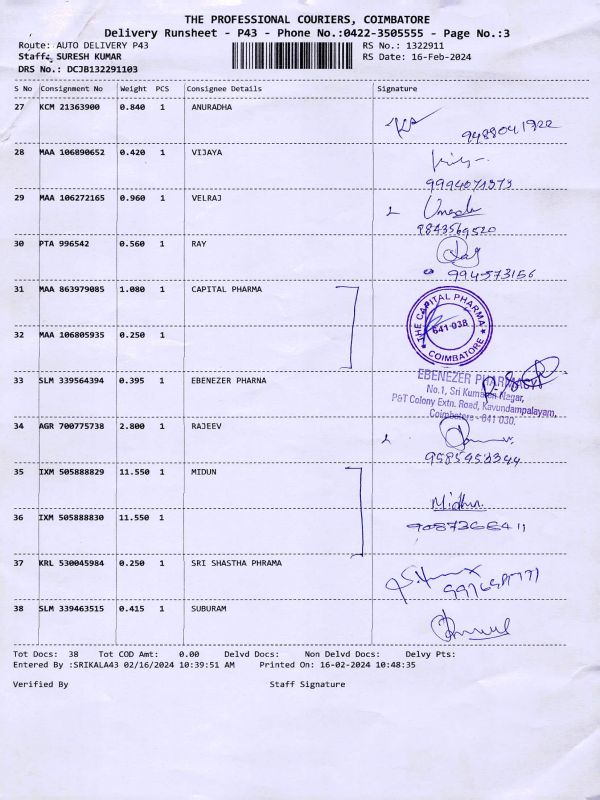 THE PROFESSIONAL COURIERS, COIMBATORE
Delivery Runsheet - P43 - Phone No.:0422-3505555 - Page No.:3
Route: AUTO DELIVERY P43 RS No.: 1322911
Staff: SURESH KUMAR RS Date: 16-Feb-2024
DRS No.: DCJB132291103
S No Consignment No Weight PCS Consignee Details Signature
27 KCM 21363900 0.840 1 ANURADHA
9488041922
28 MAA 106890652 0.420 1 VIJAYA
9994071373
29 MAA 106272165 0.960 1 VELRAJ
9843569520
30 PTA 996542 0.560 1 RAY
994573156
31 MAA 863979085 1.080 1 CAPITAL PHARMA
THE CAPITAL PHARMA
641 038
COIMBATORE
32 MAA 106805935 0.250 1
33 SLM 339564394 0.395 1 EBENEZER PHARNA
EBENEZER PHARMACY
No.1, Sri Kumaran Nagar,
P&T Colony Extn. Road, Kavundampalayam,
Coimbatore - 641 030.
34 AGR 700775738 2.800 1 RAJEEV
35 IXM 505888829 11.550 1 MIDUN
Midhun.
36 IXM 505888830 11.550 1
37 KRL 530045984 0.250 1 SRI SHASTHA PHRAMA
38 SLM 339463515 0.415 1 SUBURAM
Tot Docs: 38 Tot COD Amt: 0.00 Delvd Docs: Non Delvd Docs: Delvy Pts:
Entered By :SRIKALA43 02/16/2024 10:39:51 AM Printed On: 16-02-2024 10:48:35
Verified By Staff Signature